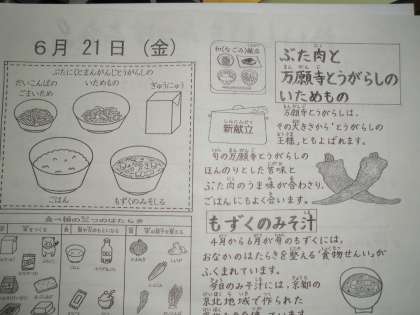 6月 21日 (金)
ぶたにくとまんがんじとうがらしの
いためもの
だいこんばの
ごまいため
ぎゅうにゅう
ごはん
もずくのみそしる
和(なごみ)献立
新献立
ぶた肉と
万願寺とうがらしの
いためもの
万願寺とうがらしは、
その大きさから"とうがらしの
王様"ともよばれます。
旬の万願寺とうがらしの
ほんのりとした甘味と
ぶた肉のうま味が合わさり、
ごはんにもよく合います。
もずくのみそ汁
4月から6月が旬のもずくには、
おなかのはたらきを整える"食物せんい"が
ふくまれています。
今日のみそ汁には、京都の
京北地域で作られた
食べ物の三つのはたらき